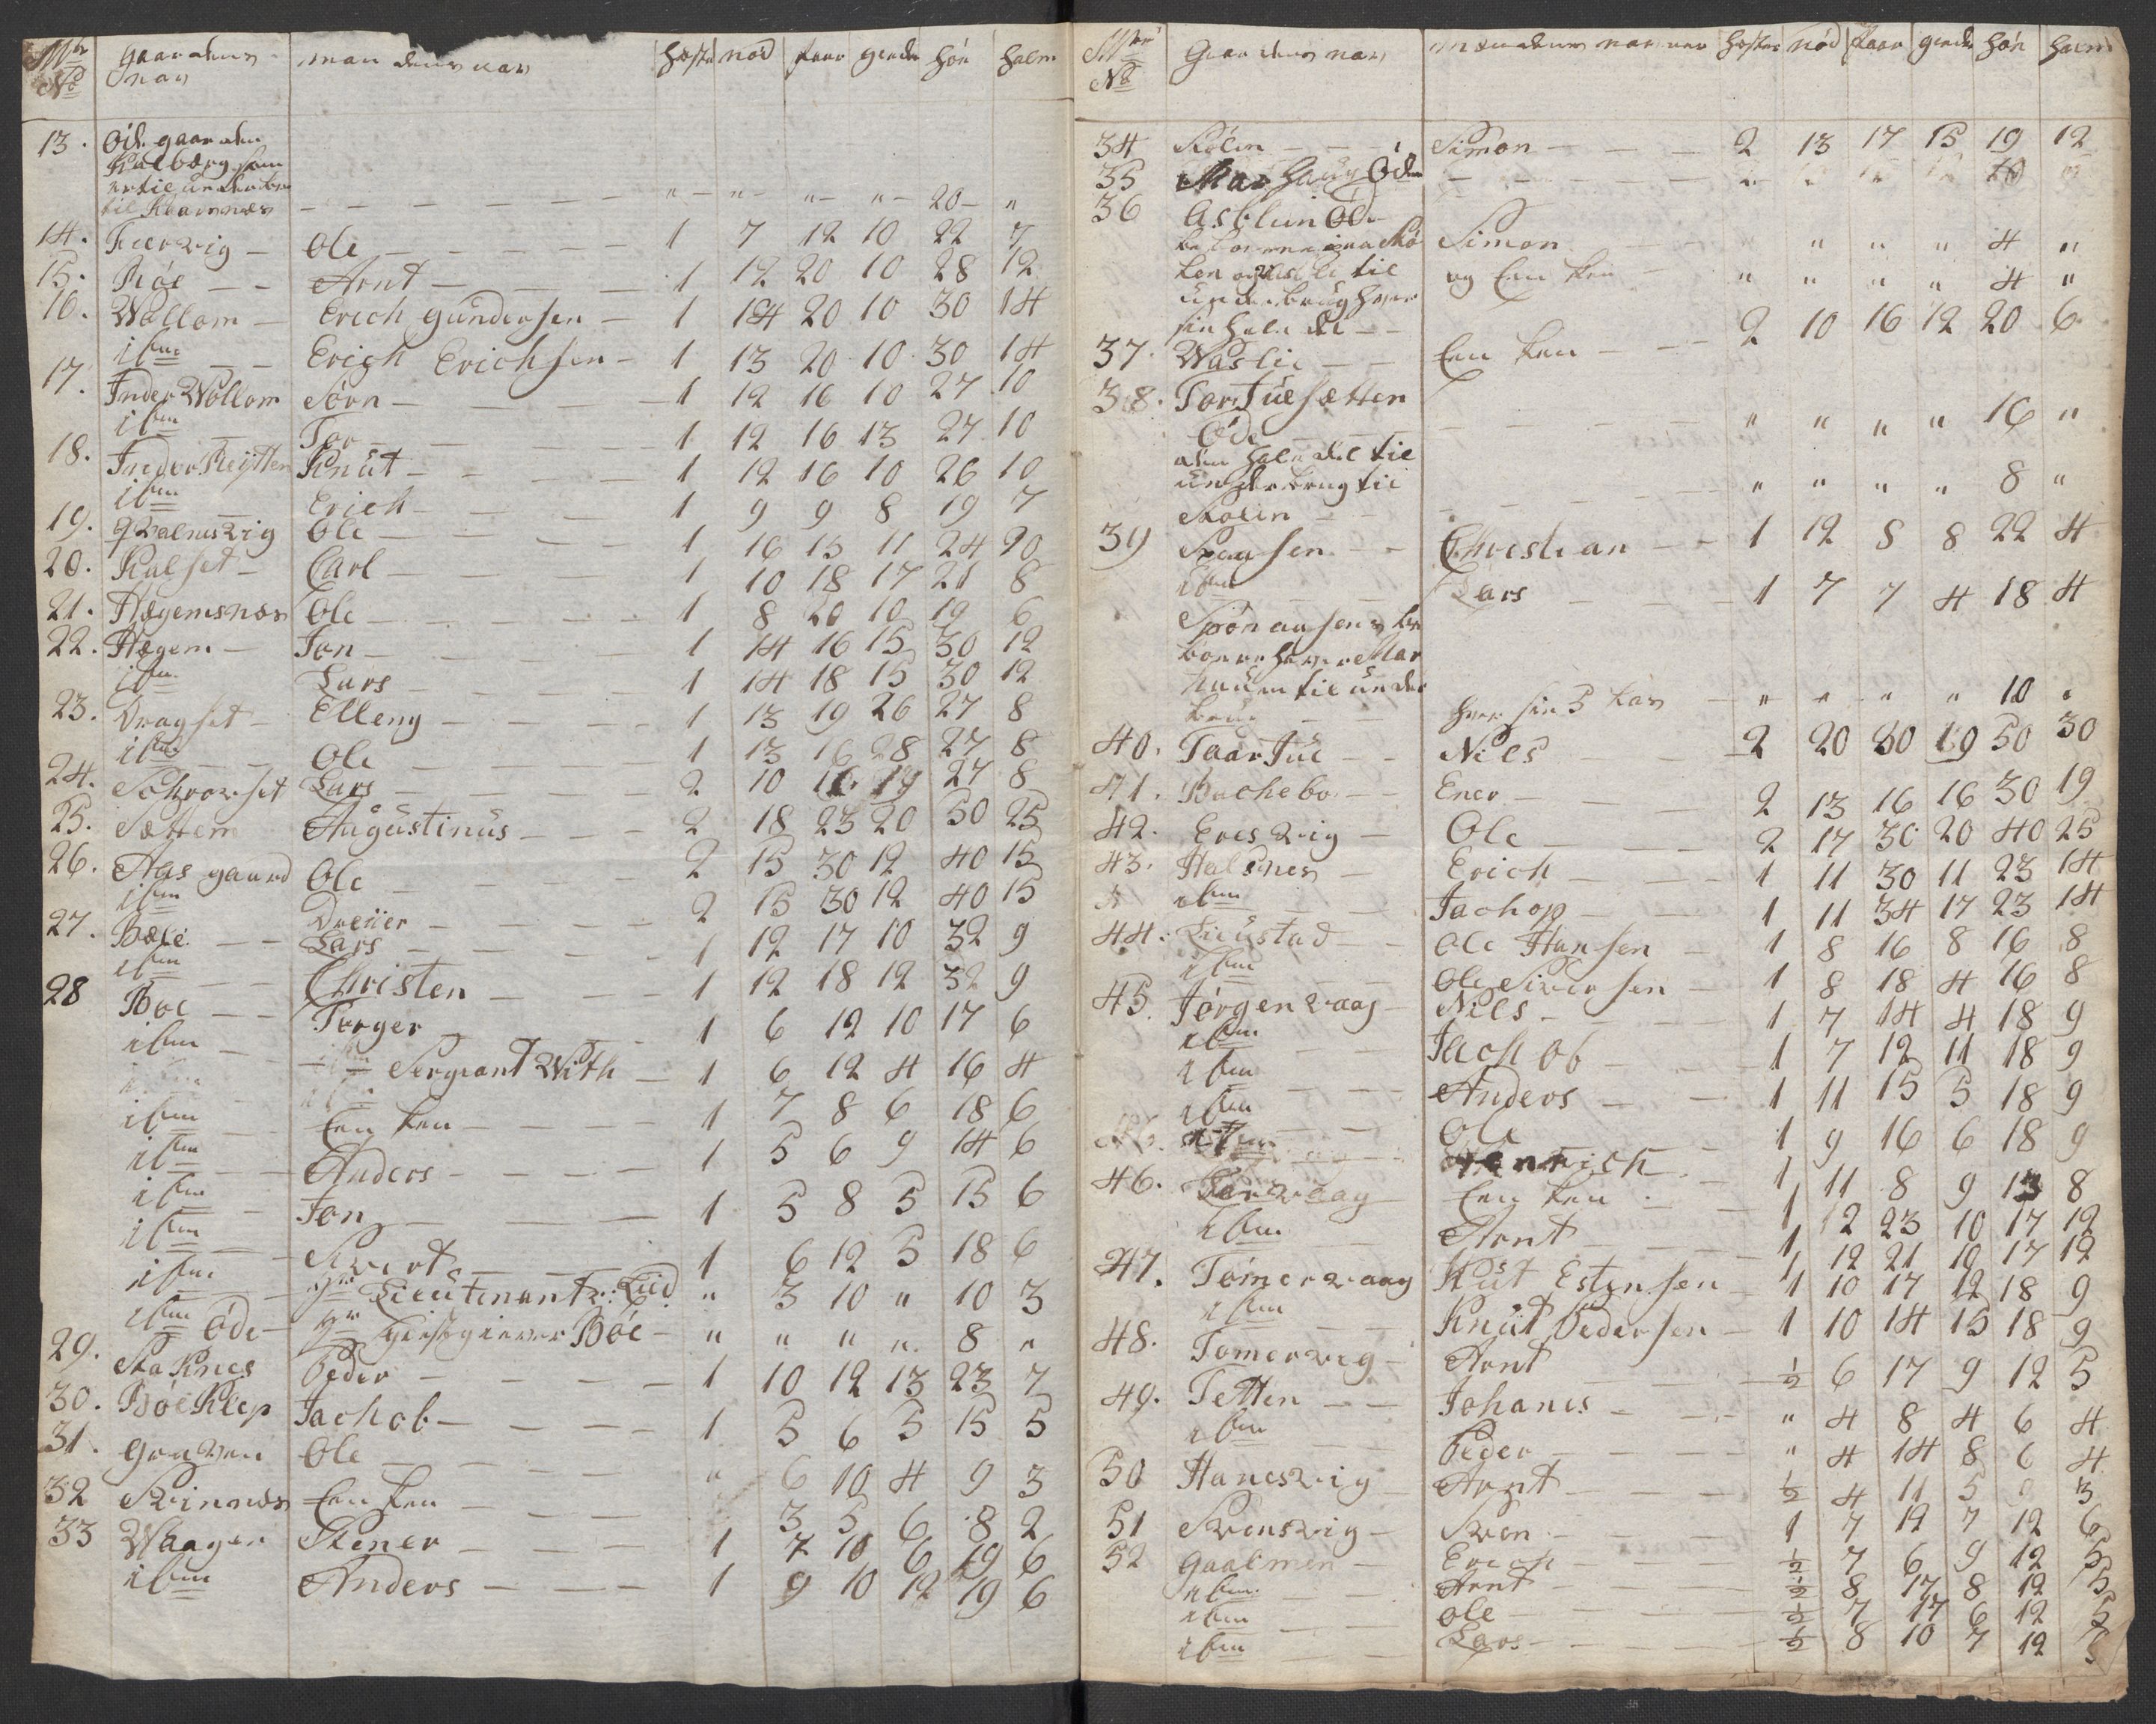 Mtr No gaardens nav man dens nav heste nød faar geeder høe halm
13. Øde gaarden
Kalberg som
er til under brug
til Kaarnæs — — — — — " " " " 20 "
14. Fuervig — Ole — — — — 1 7 12 10 22 7
15. Røe — — Arnt — — — 1 12 20 10 28 12
16. Wollom — Erich gundersen — 1 14 20 10 30 14
ibm — Erich Erichsen — 1 13 20 10 30 14
17. Inder Wollom Sørn — — — 1 12 16 10 27 10
ibm Tor — — — 1 12 16 13 27 10
18. Inder Reitten Knut — — — 1 12 16 10 26 10
ibm Erich — — — 1 9 9 8 19 7
19. qvalnesvig Ole — — — 1 16 15 11 24 20
20. Kalset — Carl — — — 1 10 18 17 21 8
21. Hægemsnæs Ole — — — 1 8 20 10 19 6
22. Hægem — Jon — — — 1 14 16 15 30 12
ibm Lars — — — 1 14 18 15 30 12
23. Dragset — Elleng — — — 1 13 19 26 27 8
ibm — Ole — — — 1 13 16 28 27 8
24. Schrovset Lars — — — 2 10 16 19 27 8
25. Sættem Augustinus — — — 2 18 23 20 50 25
26. Aas gaard Ole — — — 2 15 30 12 40 15
ibm Dreier — — — 2 15 30 12 40 15
27. Bæle — — Lars — — — 1 12 17 10 32 9
ibm — Christen — — — 1 12 18 12 32 9
28 Boe — — Torger — — — 1 6 12 10 17 6
ibm — Sergeant With — 1 6 12 4 16 4
ibm — Een ken — — — 1 7 8 6 18 6
ibm — Anders — — — 1 5 6 9 14 6
ibm — Jon — — — 1 5 8 5 15 6
ibm — Sivert — — — 1 6 12 5 18 6
ibm — Hr Lieutenant v: Lud " 3 10 " 10 3
ibm Øde — Hr giestgiever Bøe — " " " " 8 "
29. Staknes Peder — — — 1 10 12 13 23 7
30. Bøe Klep Jachob — — — 1 5 6 5 15 5
31. graven Ole — — — " 6 10 4 9 3
32 Svinnæs Een ken — — — 3 5 6 8 2
33 Waagen Stener — — — 1 7 10 6 19 6
ibm Anders — — — 1 9 10 12 19 6
Mtr No Gaardens nav mandens navner heste nød faar geeder høe halm
34 Kolen — — — Simon — — — 2 13 17 15 19 12
35 Mar haug Øde — — — — "
36 Asblein Øde
Simon " " " 4 "
til og Een ken " " " " 4 "
underbrug hver
sin halve deel — —
37. Waslie — — Een ken — — — 2 10 16 12 20 6
38. Tor Juel sætten
Øde — — — — — — " " " " 16 "
den halve deel til
underbrug til — — — — " " " " 8 "
Kolen — —
39 Svensen — — Christian — — 1 12 8 8 22 4
ibm — — Lars — — — 1 7 7 4 18 4
til under
brug — — hver sin 5 las — " " " " 10 "
40. Taar Jue — — Niels — — 2 20 30 19 50 30
41. Bachebo — — Ener — — — 2 13 16 16 30 19
42. Evesvig — Ole — — — 2 17 30 20 40 25
43. Halsnes — Erich — — — 1 11 30 11 23 14
ibm — — Jachop — — — 1 11 34 17 23 14
44. Liustad — — Ole Hansen — 1 8 16 8 16 8
ibm — — Ole Siversen — 1 8 18 4 16 8
45. Jørgenvaag — Niels — — — 1 7 14 4 18 9
ibm — — Jachob — — — 1 7 12 11 18 9
ibm — — Anders — — 1 11 15 5 18 9
ibm — — Ole — — 1 9 16 6 18 9
ibm — — Henrich — 1 11 8 9 13 8
46. Torvaag — Een ken — — 1 12 23 10 17 12
ibm — Arnt — — — 1 12 21 10 17 12
47. Tømervaag Knut Estensen — 1 10 17 12 18 9
ibm — — Knut Pedersen — 1 10 14 15 18 9
48. Tømervig — Arnt — — — ½ 6 17 9 12 5
49. Tetten — — Johanes — — — " 4 8 4 6 4
ibm — — Peder — — — " 4 14 8 6 4
50 Hanesvig — Arnt — — — ½ 4 11 5 3
51 Svensvig — Sven — — — 1 7 12 7 12 6
52 Gaalmen — Erich — — — ½ 7 6 9 12 5
ibm — — Arnt — — — ½ 8 17 8 12 5
ibm — — Ole — — — ½ 7 17 6 12 5
ibm — — Lars — — — ½ 8 10 7 12